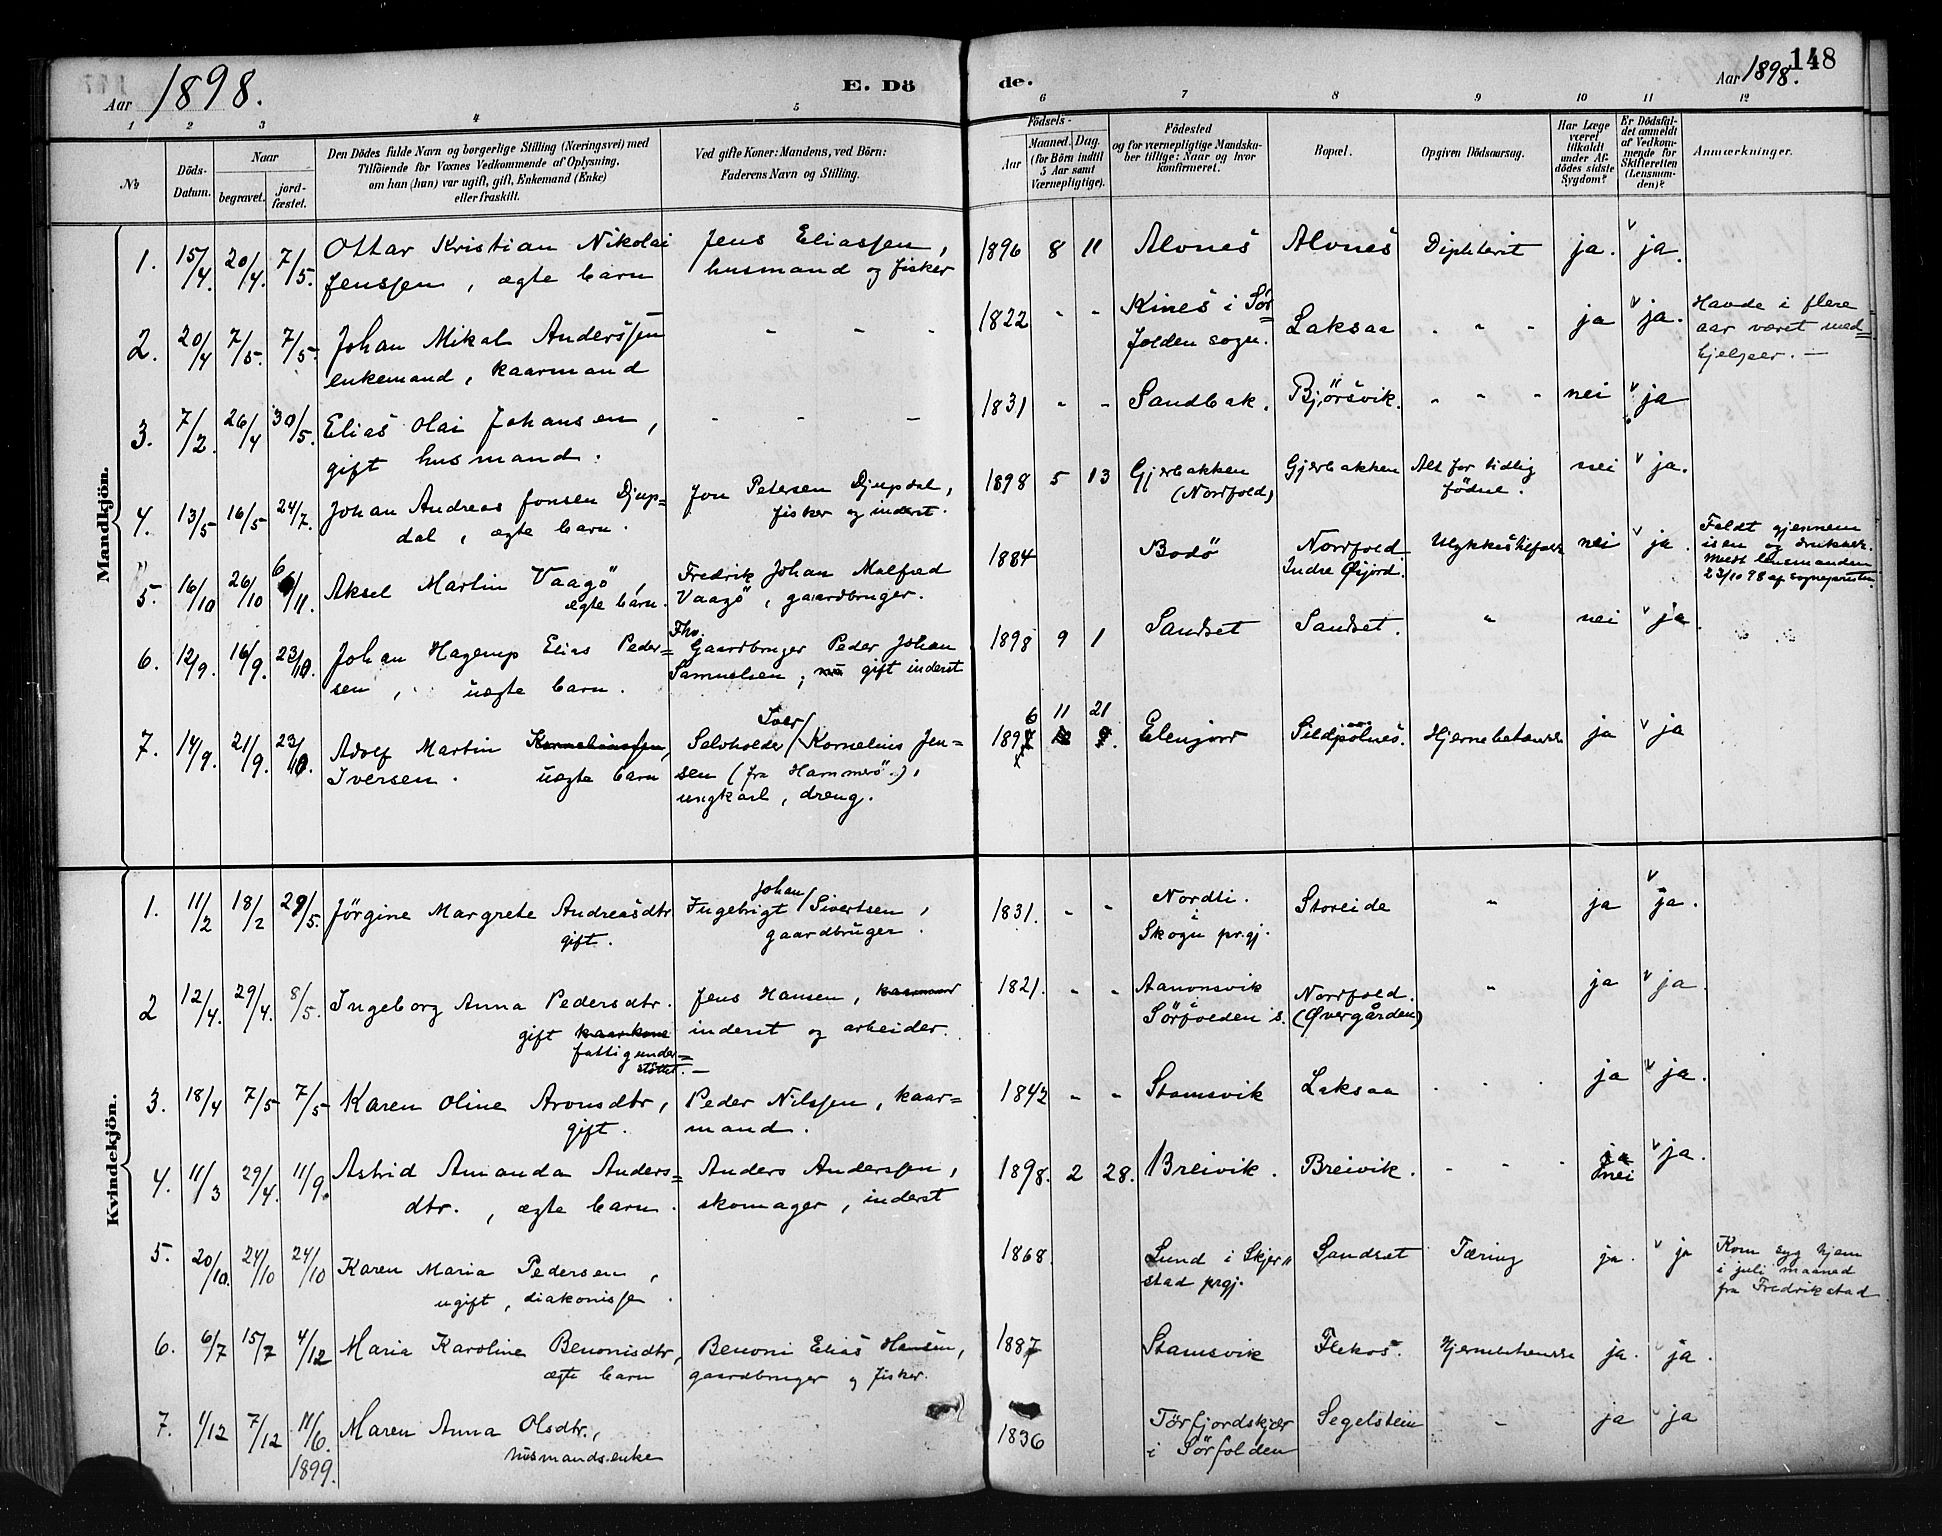 Aar 1898.
E. Dö
de.
Aar 1898.
148
1 2 3 4 5 6 7 8 9 10 11 12
№
Döds-
Datum.
Naar
begravet.
jord-
fæstet.
Den Dödes fulde Navn og borgerlige Stilling (Næringsvei) med
Tilföiende for Voxnes Vedkommende af Oplysning,
om han (hun) var ugift, gift, Enkemand (Enke)
eller fraskilt.
Ved gifte Koner: Mandens, ved Börn:
Faderens Navn og Stilling.
Födsels-
Aar
Maaned. Dag.
(for Börn indtil
5 Aar samt
Værnepligtige).
Födested
og for værnepligtige Mandska-
ber tillige: Naar og hvor
konfirmeret.
Bopæl.
Opgiven Dödsaarsag.
Har Læge
været
tilkaldt
under Af-
dödes sidste
Sygdom?
Er Dödsfal-
det anmeldt
af Vedkom-
mende for
Skifteretten
(Lensman-
den)?
Anmærkninger.
Mandkjön.
1. 15/4. 20/4. 7/5. Ottar Kristian Nikolai Jens Eliassen, 1896 8 11 Alvnes Alvnes Diphterit ja. v ja.
Jenssen, ægte barn husmand og fisker
2. 20/4 7/5. 7/5. Johan Mikal Anderssen - - - 1822 - - Kines i Sör= Laksaa - - - ja v ja. Havde i flere
enkemand, kaarmand folden sogn. aar været med=
hjelper. —
3. 7/2. 26/4 30/5. Elias Olai Johansen, - - - 1831 - - Sandbak. Bjørsvik. - - - nei v ja
gift husmand.
4. 13/5 16/5 24/7. Johan Andreas Jonsen Djup- Jon Petersen Djupdal, 1898 5 13 Gjerbakken Gjerbakken Alt for tidlig nei v ja.
dal, ægte barn. fisker og inderst. (Nordfold) födsel.
5. 16/10 26/10 6/11. Aksel Martin Vaagö, Fredrik Johan Malfred 1884 Bodö Nordfold Ulykkestilfælde nei v ja. Faldt gjennem
ægte barn. Vaagö, gaardbruger. Indre Øijord. isen og druknet.
Meldt lensmanden
23/10 98 af sognepresten
6. 12/9. 16/9. 23/10. Johan Hagerup Elias Peder= Fhv. Gaardbruger Peder Johan 1898 9 1 Sandset Sandset. " nei v ja
sen, uægte barn. Samuelsen, nu gift inderst
7. 14/9. 21/9. 23/10. Adolf Martin Korneliussen, Selvholder / Iver Kornelius Jen= 1896 11 21 Elenjord Sildpolnes. Hjernebetændelse ja v ja
Iversen. uægte barn sen (fra Hammerö.),
ungkarl, dreng.
Kvindekjön.
1. 11/2 18/2 29/5. Jörgine Margrete Andreasdtr Ingebrigt / Johan Sivertsen, 1831. - - Nordli. Storeide " ja v ja.
gift. gaardbruger. i
Skogn prgj.
2 12/4. 29/4. 8/5. Ingeborg Anna Pedersdtr. Jens Hansen, kaarmand 1821. - - Aanonsvik Nordfold. " ja v ja.
gift kaarkone inderst og arbeider. Sörfolden s. (Øvergården)
fattigunder=
stöttet. —
3. 18/4 7/5 7/5 Karen Oline Aronsdtr, Peder Nilssen, kaar= 1842 - - Stamsvik Laksaa - - - ja v ja.
gift. mand.
4. 11/3 29/4. 11/9. Astrid Amanda Anders= Anders Anderssen, 1898. 2 28. Breivik. Breivik. - - - ja v ja.
dtr., ægte barn. skomager, inderst nei
5. 20/10. 24/10 24/10 Karen Maria Pedersen, 1868. Lund i Skjer= Sandset Tæring ja. v ja Kom syg hjem
ugift, diakonisse. stad prgj. i juli maaned
fra Fredrikstad
6. 6/7 15/7 4/12 Maria Karoline Benonisdtr, Benoni Elias Hansen, 1887 Stamsvik Flekos Hjernebetændelse ja. v ja.
ægte barn gaardbruger og fisker.
7. 1/12 7/12 11/6. Maren Anna Olsdtr., 1836 Törfjordskjær Segelstein " ja v ja
1899. husmandsenke i Sörfolden